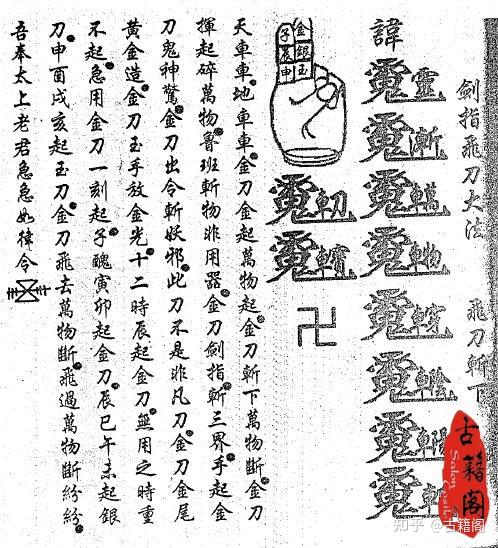 劍指飛刀大法　飛刀斬下
諱
金銀玉
子辰申
卍
天車車地車車金刀金起萬物起金刀斬下萬物斷金刀
揮起碎萬物魯班斬物非用器金刀劍指斬三界手起金
刀鬼神驚金刀出令斬妖邪此刀不是非凡刀金刀金尾
黃金造金刀玉手放金光十二時辰起金刀無用之時重
不起急用金刀一刻起子醜寅卯起金刀辰巳午未起銀
刀申酉戌亥起玉刀金刀飛去萬物斷飛過萬物斷紛紛
吾奉太上老君急急如律令
古籍阁
Salon
知乎 @古籍阁